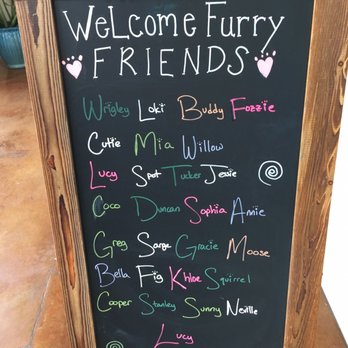 WeLcome Furry
FRIENDS
Wrigley Loki Buddy Fozzie
Cutie Mia Willow
Lucy Spot Tucker Jessie
Coco Duncan Sophia Annie
Greg Sarge Gracie Moose
Bella Fig Khloe Squirrel
Cooper Stanley Sunny Neville
Lucy